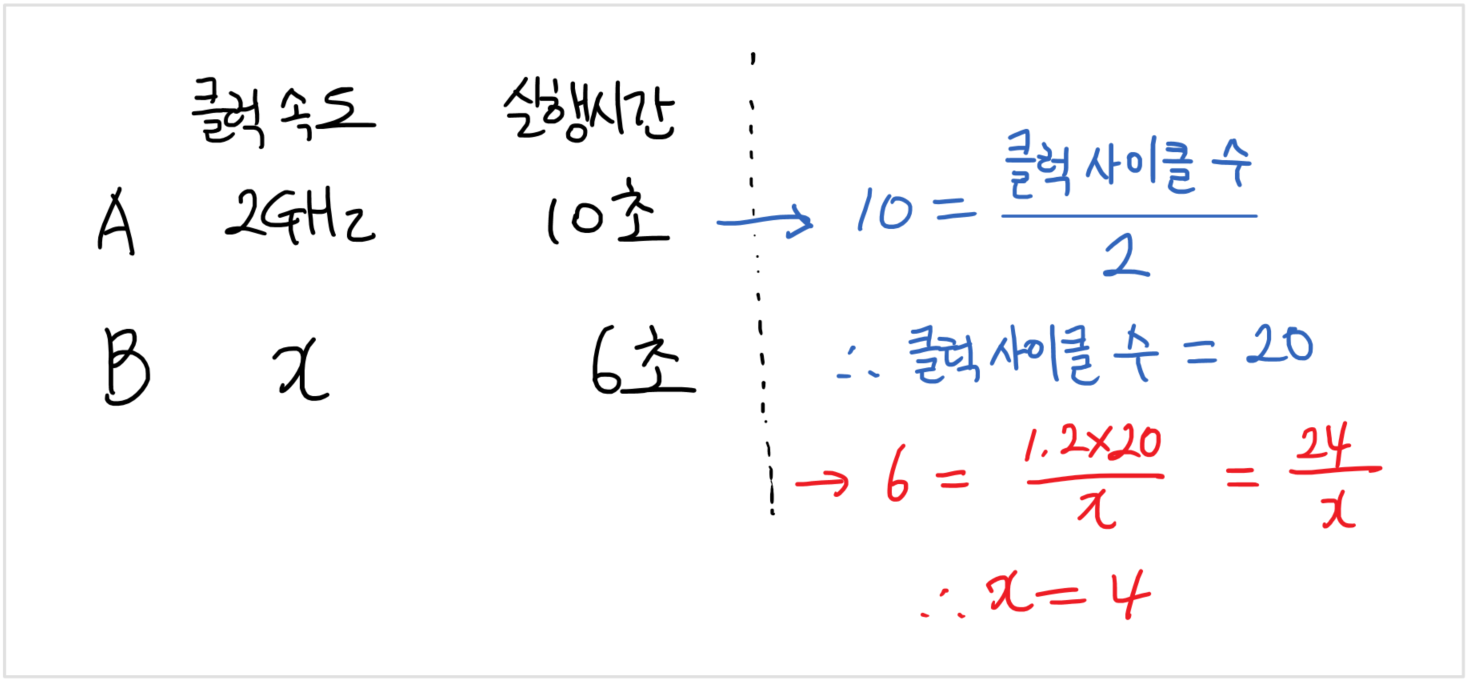 클럭 속도 실행시간
A 2GHz 10초 → 10 = 클럭 사이클 수 / 2
∴ 클럭 사이클 수 = 20
B x 6초
→ 6 = 1.2×20 / x = 24 / x
∴ x = 4